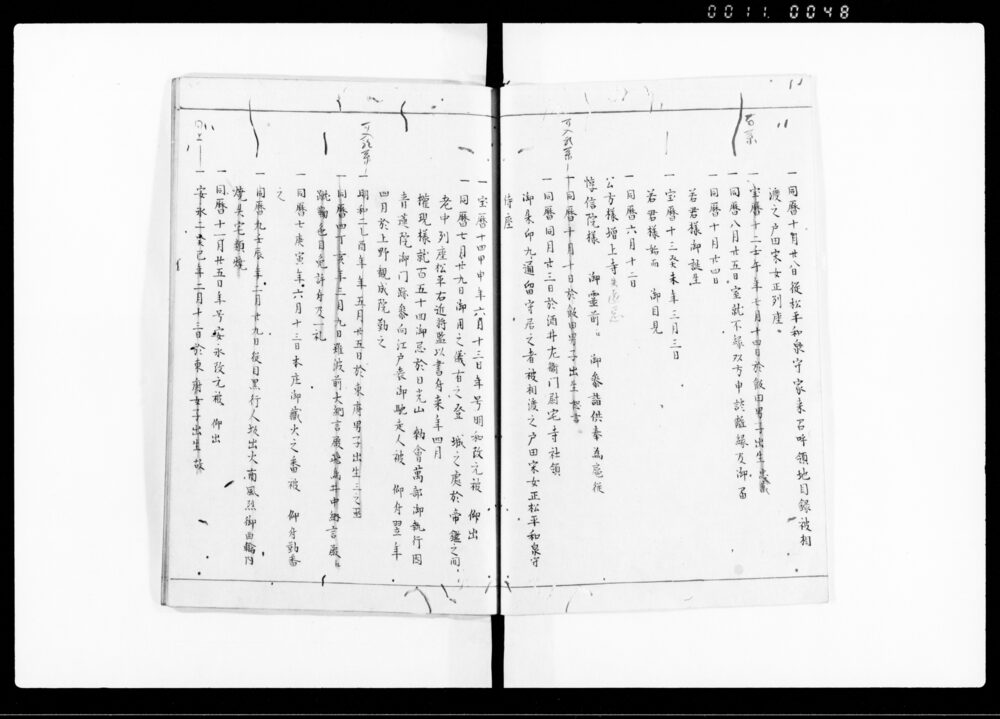 0011. 0048
一同暦十月廿八日従松平和泉守家来召呼領地目録被相
渡之戸田采女正列座。
一宝暦十二壬午年七月十四日於飯田男子出生
一同暦八月廿五日室就不縁双方申談離縁
一同暦十月廿四日
若君様御誕生
一宝暦十三癸未年三月三日
若君様始而 御目見
一同暦六月十二日
公方様増上寺
惇信院様 御霊前 御参詣供奉
一同暦十月十日於飯田男子出生
一同暦同月廿三日於酒井左衛門尉宅寺社領
御朱印九通留守居之者被相渡之戸田采女正松平和泉守
侍座
一宝暦十四甲申年六月十三日年号明和改元被 仰出
一同暦七月廿九日御用之儀有之登 城之処於帝鑑之間
老中列座松平右近将監以書付来年四月
権現様就百五十回御忌於日光山 勅会萬部御執行因
青蓮院御門跡参向江戸表御馳走人被 仰付翌年
四月於上野観成院勤之
一明和二乙酉年五月廿五日於東府男子出生
一同暦四丁亥年二月九日難波前大納言
蹴鞠色目免許有及一礼
一同暦七庚寅年六月十三日本庄御蔵火之番被 仰付勤番
之
一同暦九壬辰年二月廿九日従目黒行人坂出火南風烈御曲輪内
焼失宅類焼
一同暦十一月廿五日年号安永改元被 仰出
一安永二癸巳年二月十三日於東府女子出生